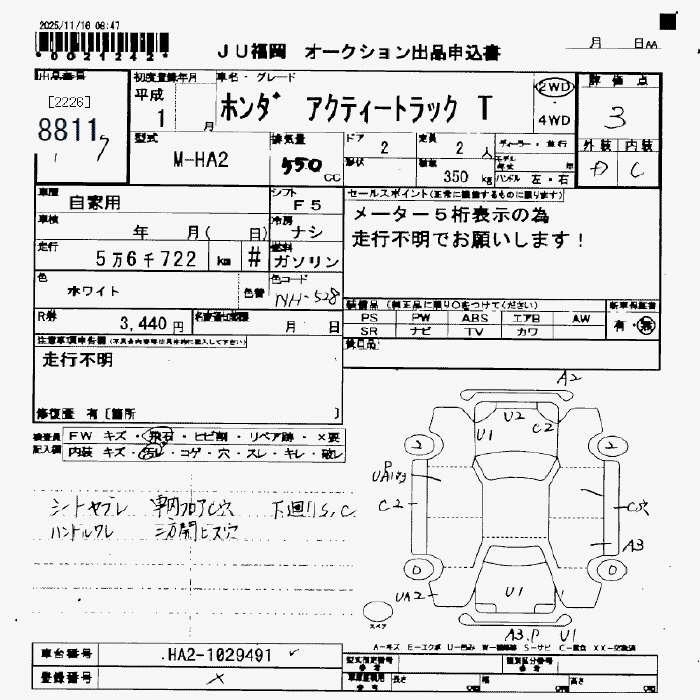 2025/11/16 06:47
*0021242*
JU福岡 オークション出品申込書
月 日 AA
出品番号
[2226]
8811
初度登録年月
平成
1 月
車名・グレード
ホンダ アクティートラック T
2WD
4WD
評価点
3
外装 内装
D C
型式
M-HA2
排気量
550 CC
ドア
2
定員
2 人
形状
積載
350 kg
ディーラー・並行
モデル年式 年
ハンドル 左・右
車歴
自家用
シフト
F5
車検
年 月( 日)
冷房
ナシ
走行
5万6千722 km #
燃料
ガソリン
色
ホワイト
色替
色コード
NH-528
R券
3,440 円
名義変更期限
月 日
セールスポイント(正常に機能するものに限ります)
メーター5桁表示の為
走行不明でお願いします!
装備品 (純正品に限り○をつけてください)
PS PW ABS エアB AW
SR ナビ TV カワ
新車保証書
有・無
後日品
注意事項申告欄
走行不明
修復歴 有 [箇所 ]
検査員記入欄
FW キズ・飛石・ヒビ割・リペア跡・×要
内装 キズ・汚レ・コゲ・穴・スレ・キレ・破レ
シートヤブレ 車内フロアC穴 下廻りS,C
ハンドルワレ 三方開ビス穴
A2
U2
U1 C2
2 2
P
UA
C2
C穴
A3
0 0
UA2
U1
スペア
A3.P U1
A-キズ E-エクボ U-凹み W-補修跡 S-サビ C-腐食 XX-交換済
車台番号
HA2-1029491
登録番号
型式指定番号
類別区分番号
長さ cm 幅 cm 高さ cm